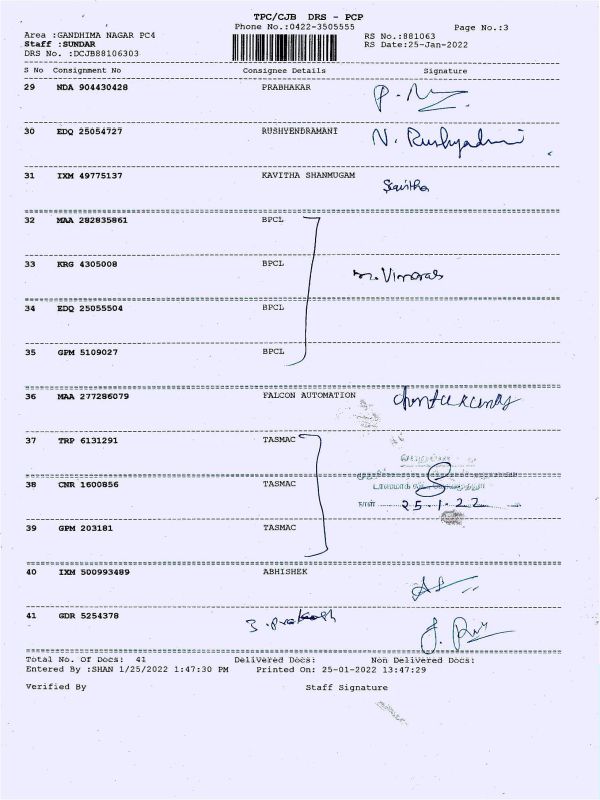 TPC/CJB DRS - PCP
Phone No.:0422-3505555
Page No.:3
Area :GANDHIMA NAGAR PC4
RS No.:881063
Staff :SUNDAR
RS Date:25-Jan-2022
DRS No. :DCJB88106303
S No Consignment No Consignee Details Signature
29 NDA 904430428 PRABHAKAR
30 EDQ 25054727 RUSHYENDRAMANI
31 IXM 49775137 KAVITHA SHANMUGAM
32 MAA 282835861 BPCL
33 KRG 4305008 BPCL
34 EDQ 25055504 BPCL
35 GPM 5109027 BPCL
36 MAA 277286079 FALCON AUTOMATION
37 TRP 6131291 TASMAC
38 CNR 1600856 TASMAC
நாள் 25.1.22
39 GPM 203181 TASMAC
40 IXM 500993489 ABHISHEK
41 GDR 5254378
Total No. Of Docs: 41 Delivered Docs: Non Delivered Docs:
Entered By :SHAN 1/25/2022 1:47:30 PM Printed On: 25-01-2022 13:47:29
Verified By Staff Signature